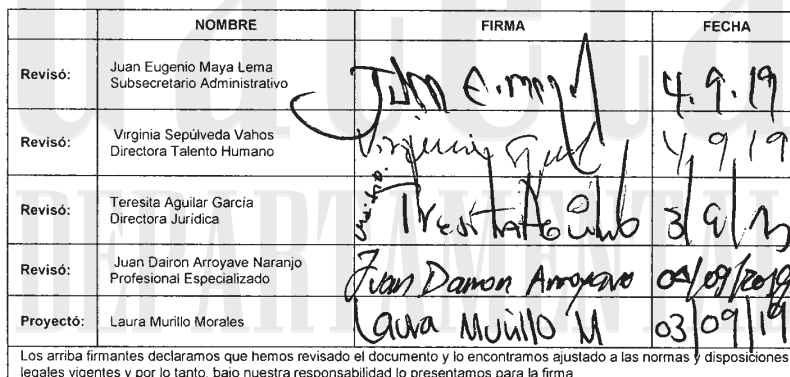 NOMBRE FIRMA FECHA
Revisó: Juan Eugenio Maya Lema
Subsecretario Administrativo
4.9.19
Revisó: Virginia Sepúlveda Vahos
Directora Talento Humano
Virginia 4/9/19
Revisó: Teresita Aguilar García
Directora Jurídica
Teresita Aguilar 3/9/
Revisó: Juan Dairon Arroyave Naranjo
Profesional Especializado
Juan Dairon Arroyave 04/09/2019
Proyectó: Laura Murillo Morales Laura Murillo M 03/09/19
Los arriba firmantes declaramos que hemos revisado el documento y lo encontramos ajustado a las normas y disposiciones
legales vigentes y por lo tanto, bajo nuestra responsabilidad lo presentamos para la firma
DEPARTAMENTAL